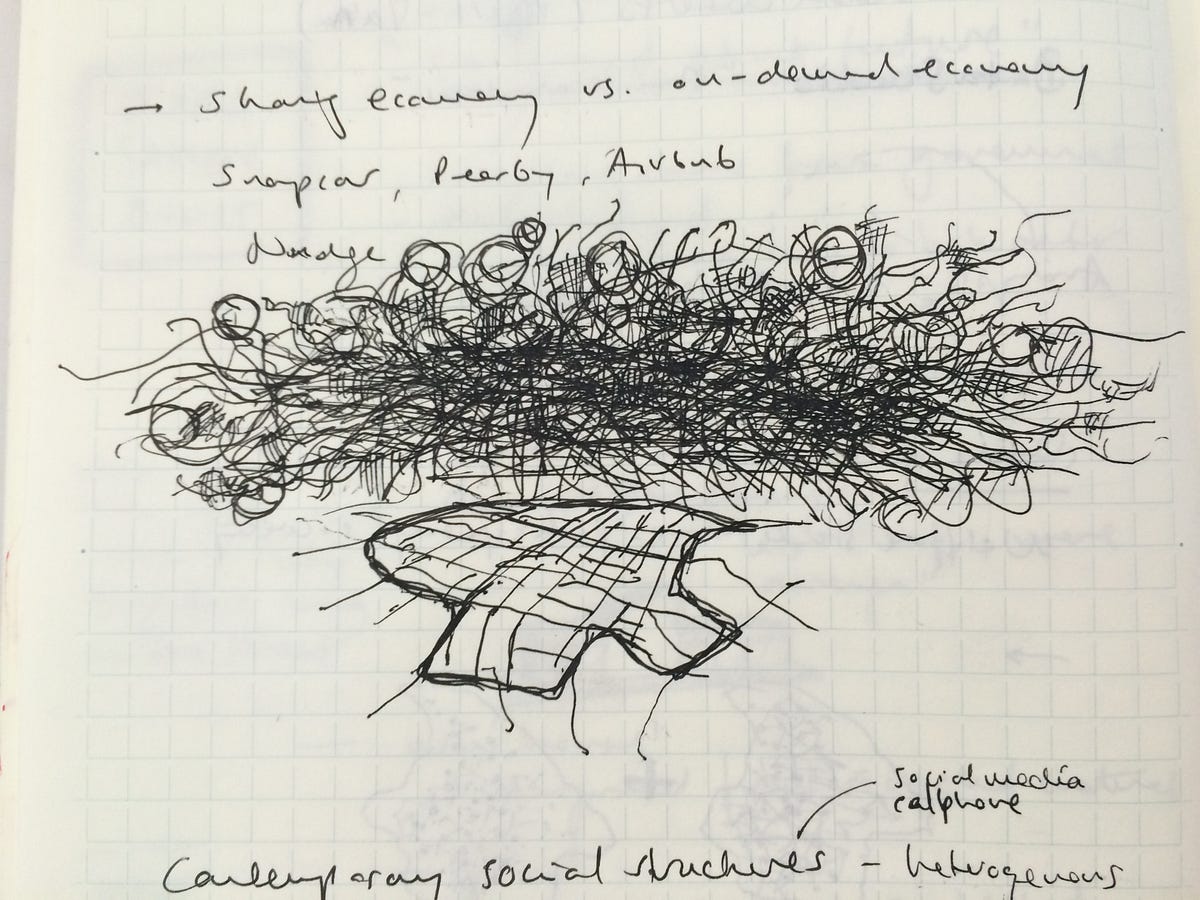 → Sharing economy vs. on-demand economy
Snapcar, Peerby, Airbnb
Nudge
social media
cellphone
Contemporary social structures – heterogenous